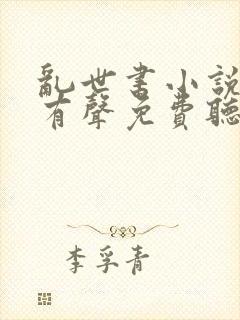 亂世書小說
有聲免費聽
李孚青